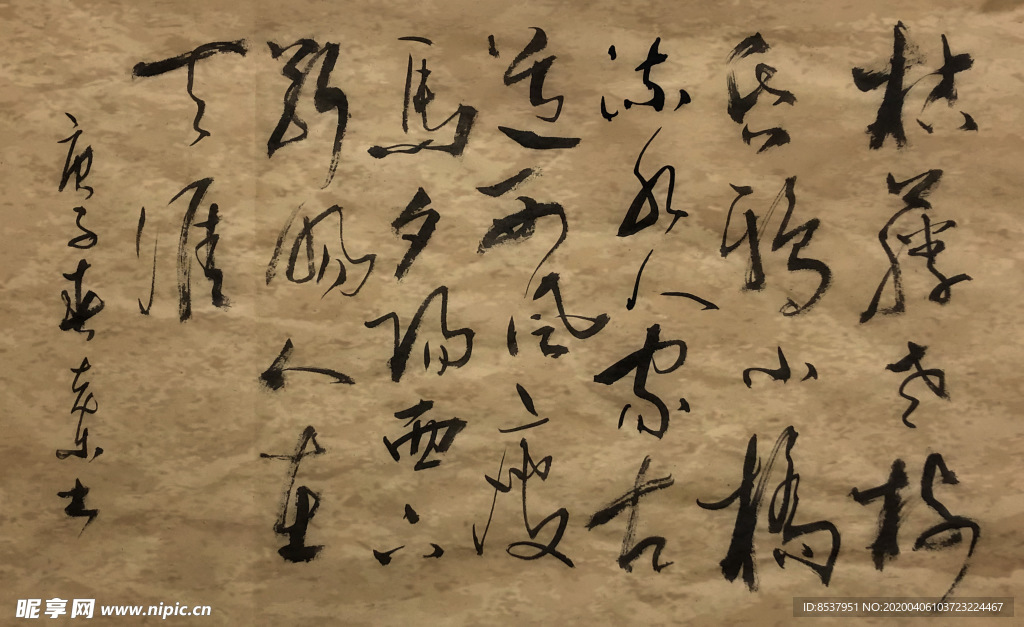 枯藤老树
昏鴉小橋
流水人家古
道西风瘦
馬夕陽西下
断腸人在
天涯
庚子春
昵享网 www.nipic.cn
ID:8537951 NO:20200406103723224467